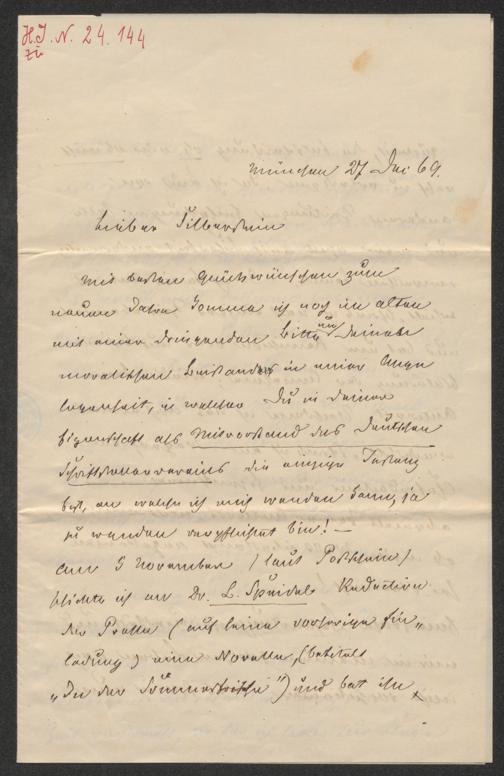 H. I. N. 24.144
zu
München 27 Dec 69.
Lieber Silberstein
Mit besten Glückwünschen zum
neuen Jahre komme ich noch im alten
mit einer dringenden Bitte um Deinen
moralischen Beistand in einer Ange
legenheit, in welcher Du in Deiner
Eigenschaft als Mitvorstand des Deutschen
Schriftstellervereins die einzige Instanz
bist, an welche ich mich wenden kann, ja
zu wenden verpflichtet bin! —
Am 5 November (laut Postschein)
schickte ich an Dr. L. Speidel Redaction
der Presse (auf seine vorherige Ein„
ladung) eine Novelle, (betitelt
„In der Sommerfrische") und bat ihn